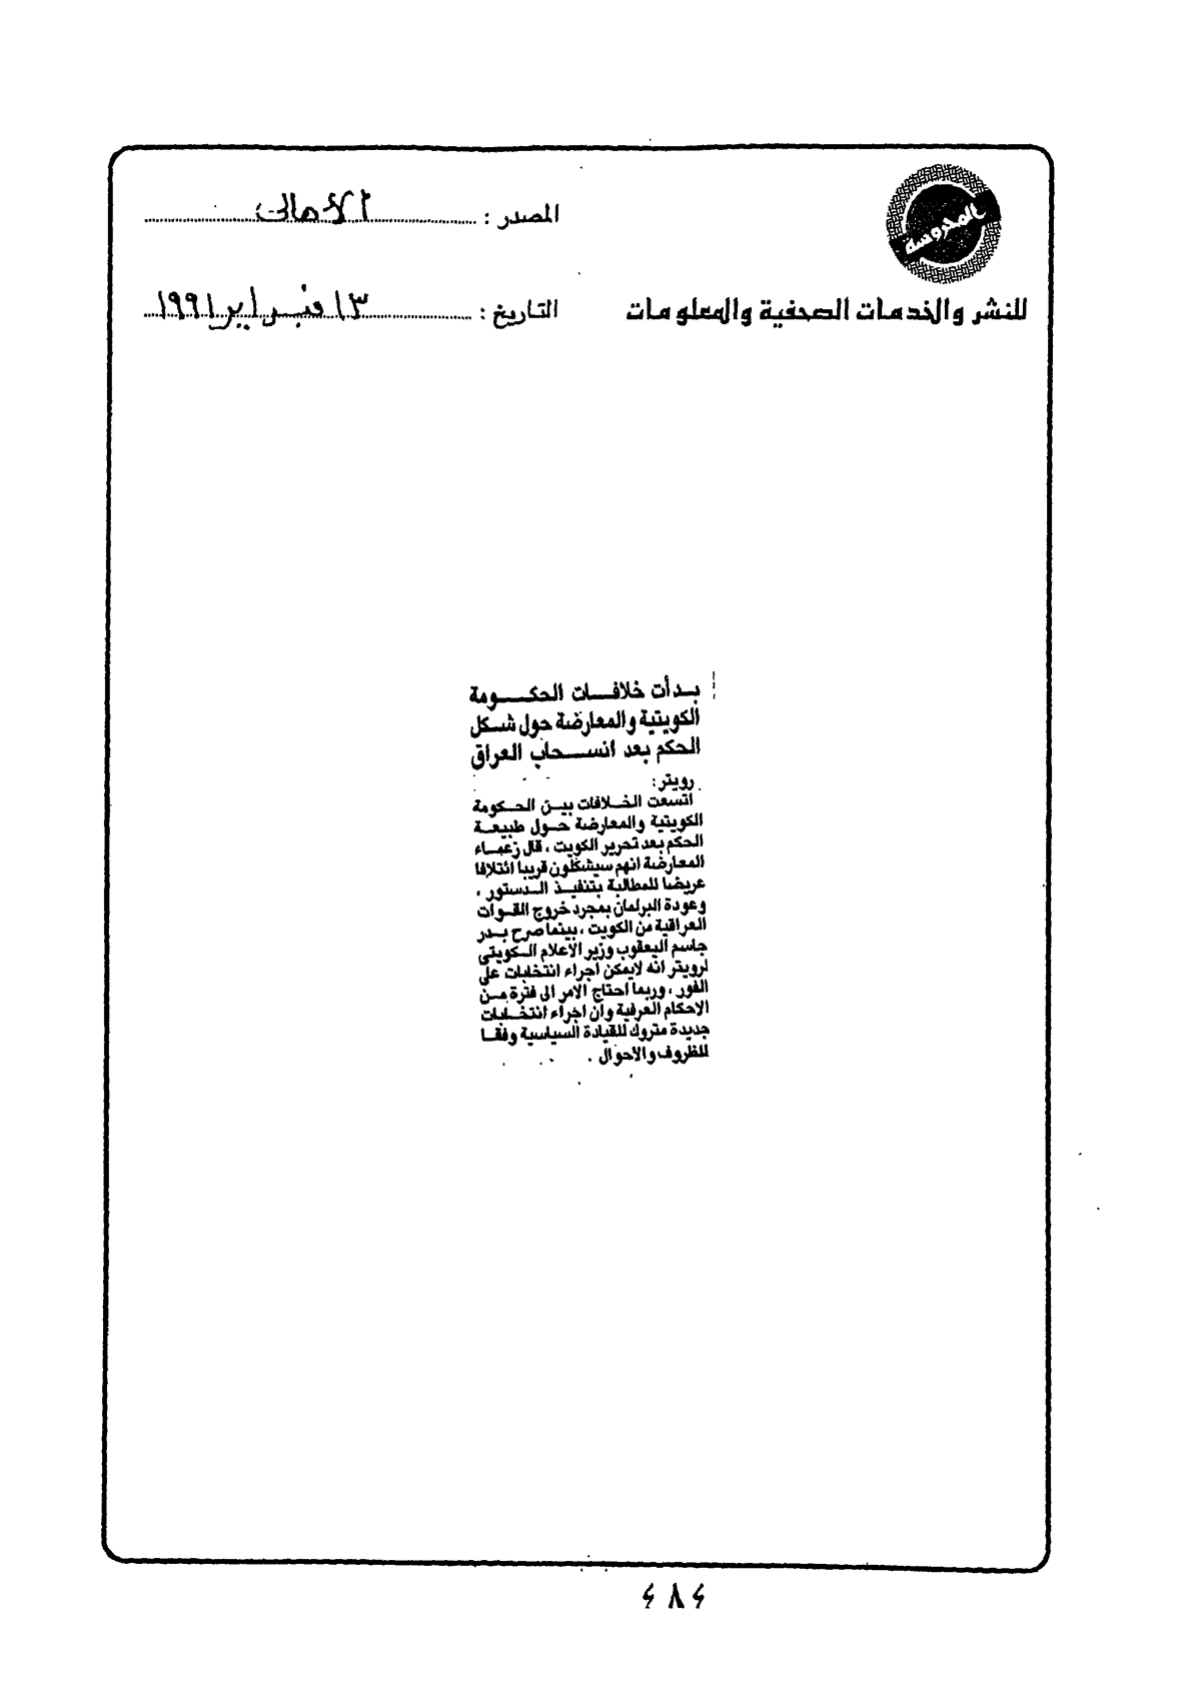 المحروسة
للنشر والخدمات الصحفية والمعلومات
المصدر : الأهالى
التاريخ : ١٣ فبراير ١٩٩١
بدأت خلافات الحكومة
الكويتية والمعارضة حول شكل
الحكم بعد انسحاب العراق
رويتر :
اتسعت الخلافات بين الحكومة
الكويتية والمعارضة حول طبيعة
الحكم بعد تحرير الكويت ، قال زعماء
المعارضة انهم سيشكلون قريبا ائتلافا
عريضا للمطالبة بتنفيذ الدستور ،
وعودة البرلمان بمجرد خروج القوات
العراقية من الكويت ، بينما صرح بدر
جاسم اليعقوب وزير الاعلام الكويتى
لرويتر انه لايمكن اجراء انتخابات على
الفور ، وربما احتاج الامر الى فترة من
الاحكام العرفية وان اجراء انتخابات
جديدة متروك للقيادة السياسية وفقا
للظروف والاحوال .
٤٨٤